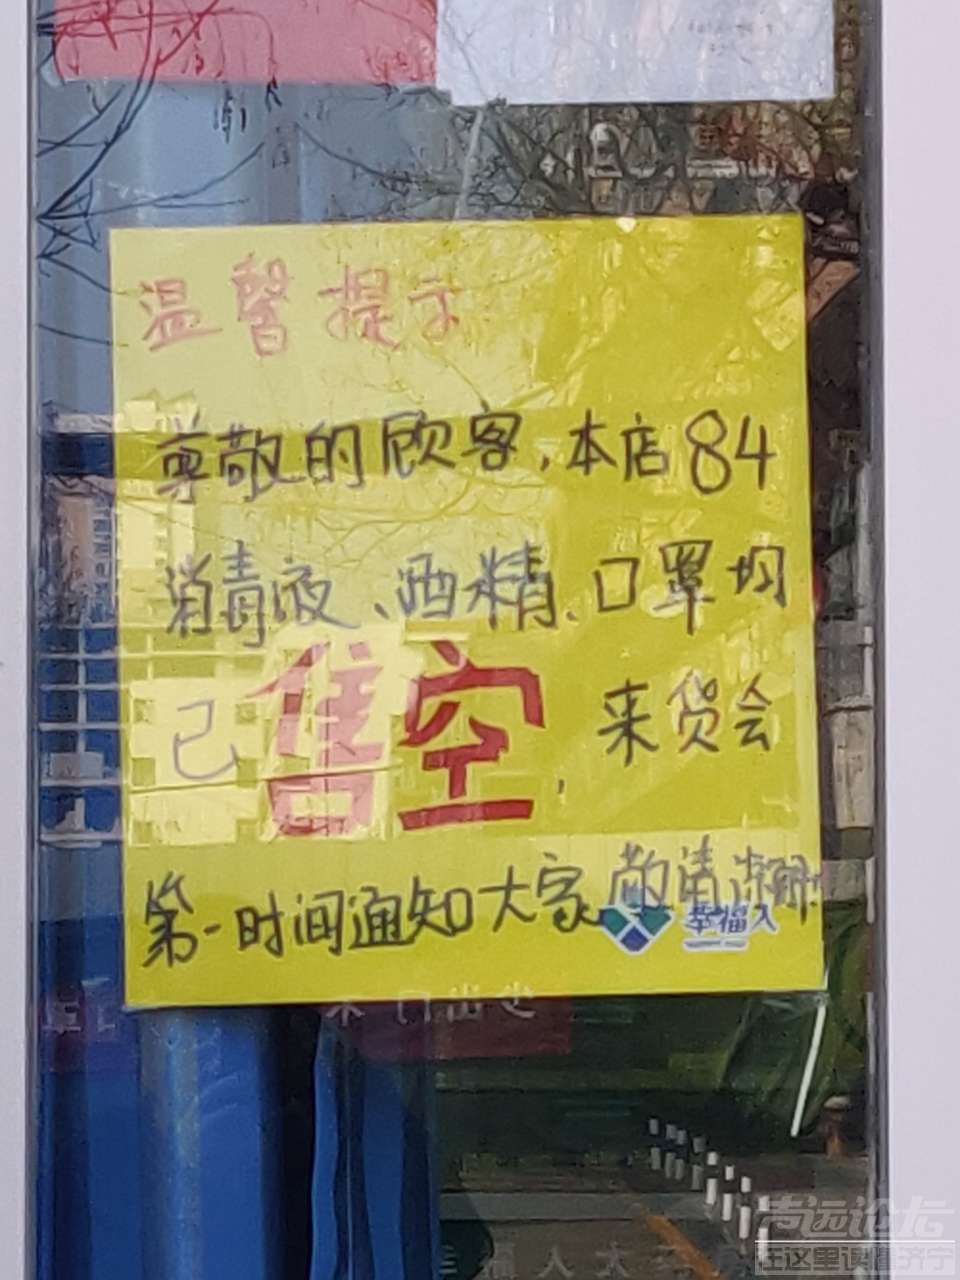 温馨提示
尊敬的顾客,本店84
消毒液、酒精、口罩均
已售空,来货会
第一时间通知大家敬请谅解!
幸福人
本门出
志远论坛
在这里读懂济宁